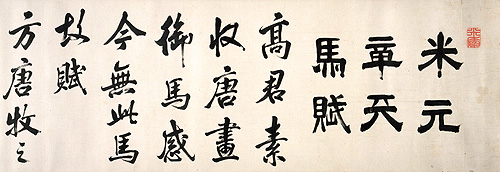 米元
章天
馬賦
高君素
收唐畫
御馬感
今無此馬
故賦
方唐牧之